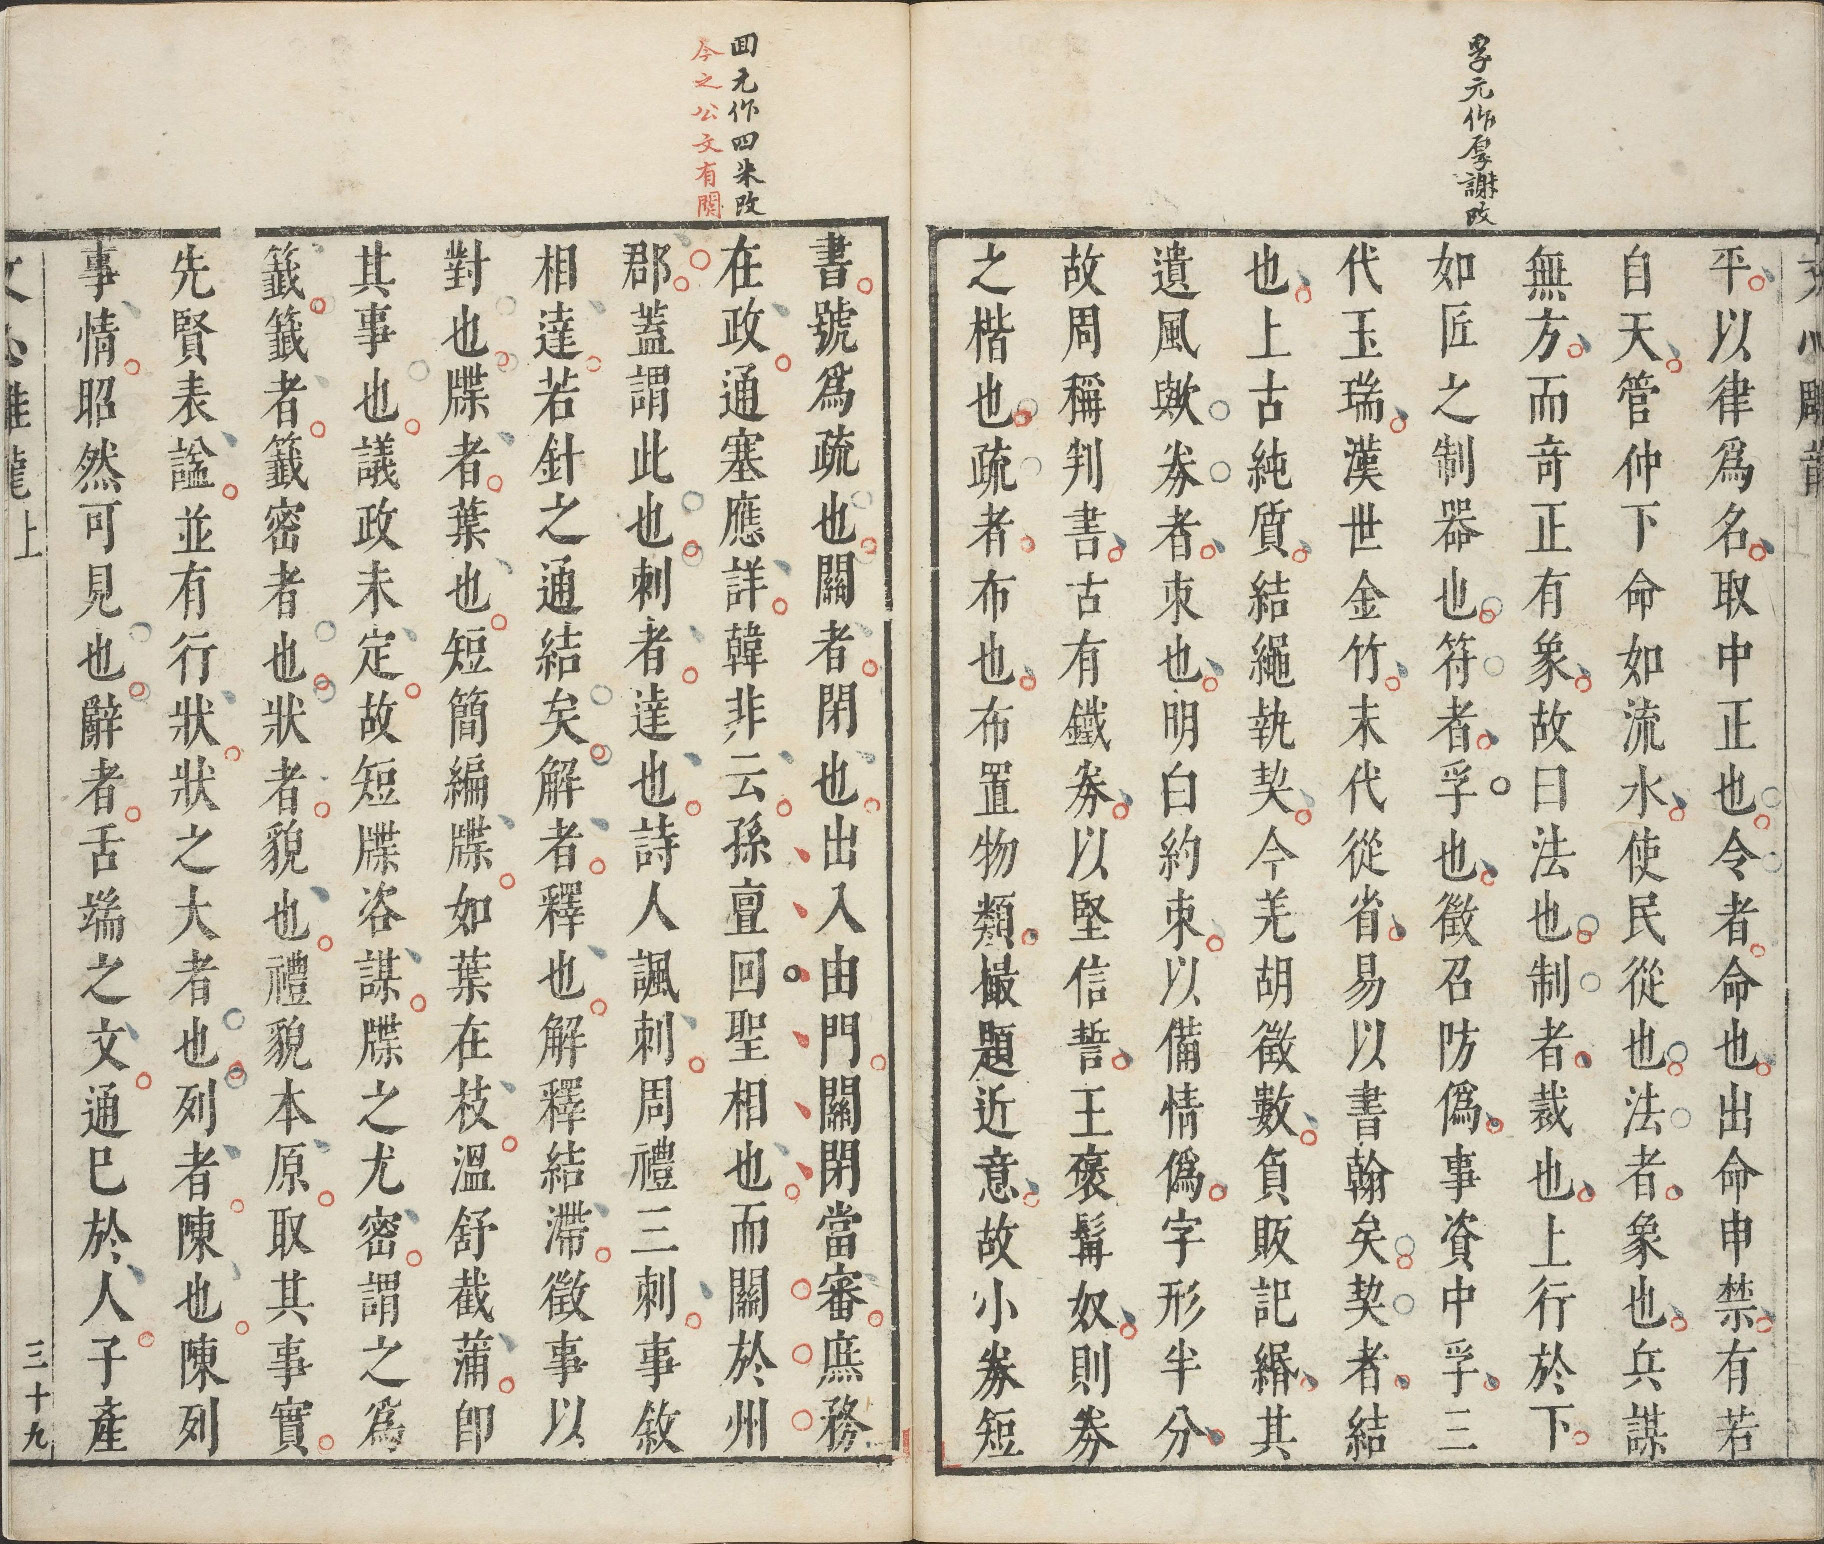 孚元作厚謝改
平以律爲名取中正也令者命也出命申禁有若
自天管仲下命如流水使民從也法者象也兵謀
無方而奇正有象故曰法也制者裁也上行於下
如匠之制器也符者孚也徵召防僞事資中孚三
代玉瑞漢世金竹末代從省易以書翰矣契者結
也上古純質結繩執契今羌胡徵數負販記緡其
遺風歟券者束也明白約束以備情僞字形半分
故周稱判書古有鐵券以堅信誓王褒髯奴則券
之楷也疏者布也布置物類撮題近意故小券短
回元作四朱改
今之公文有關
書號爲疏也關者閉也出入由門關閉當審庶務
在政通塞應詳韓非云孫亶回聖相也而關於州
郡蓋謂此也刺者達也詩人諷刺周禮三刺事敘
相達若針之通結矣解者釋也解釋結滯徵事以
對也牒者葉也短簡編牒如葉在枝溫舒截蒲卽
其事也議政未定故短牒咨謀牒之尤密謂之爲
籤籤者籤密者也狀者貌也禮貌本原取其事實
先賢表謚並有行狀狀之大者也列者陳也陳列
事情昭然可見也辭者舌端之文通巳於人子產
文心雕龍上
三十九